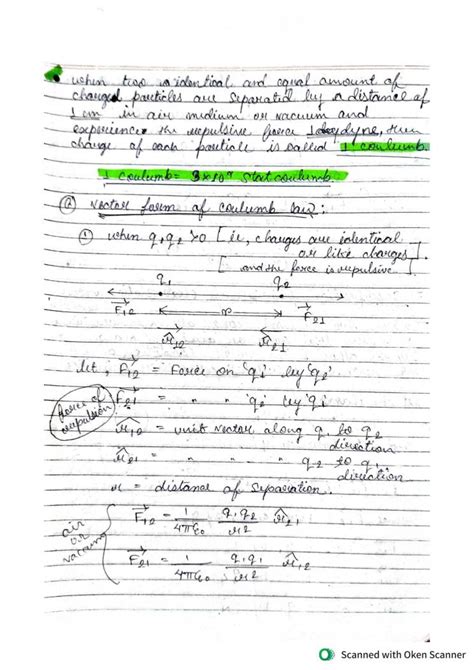 when two identical and equal amount of
charged particles are separated by a distance of
1 cm in air medium or vacuum and
experience the repulsive force 1 dyne, then
charge of each particle is called 1 coulumb.
1 Coulumb = 3×10⁹ stat coulumb.
② Vector form of Coulumb law :
① when q₁q₂ >0 [ie, charges are identical
or like charges]
[and the force is repulsive]
q₁ q₂
F₁₂ r F₂₁
r̂₁₂ r̂₂₁
let, F₁₂ = Force on 'q₁' by 'q₂'
force of repulsion
F₂₁ = " " 'q₂' by 'q₁'
r̂₁₂ = unit vector along q₁ to q₂
direction
r̂₂₁ = " " " q₂ to q₁
direction
r = distance of separation.
air or vacuum
F₁₂ = 1/4πε₀ q₁q₂/r² r̂₂₁
F₂₁ = 1/4πε₀ q₁q₁/r² r̂₁₂
Scanned with Oken Scanner